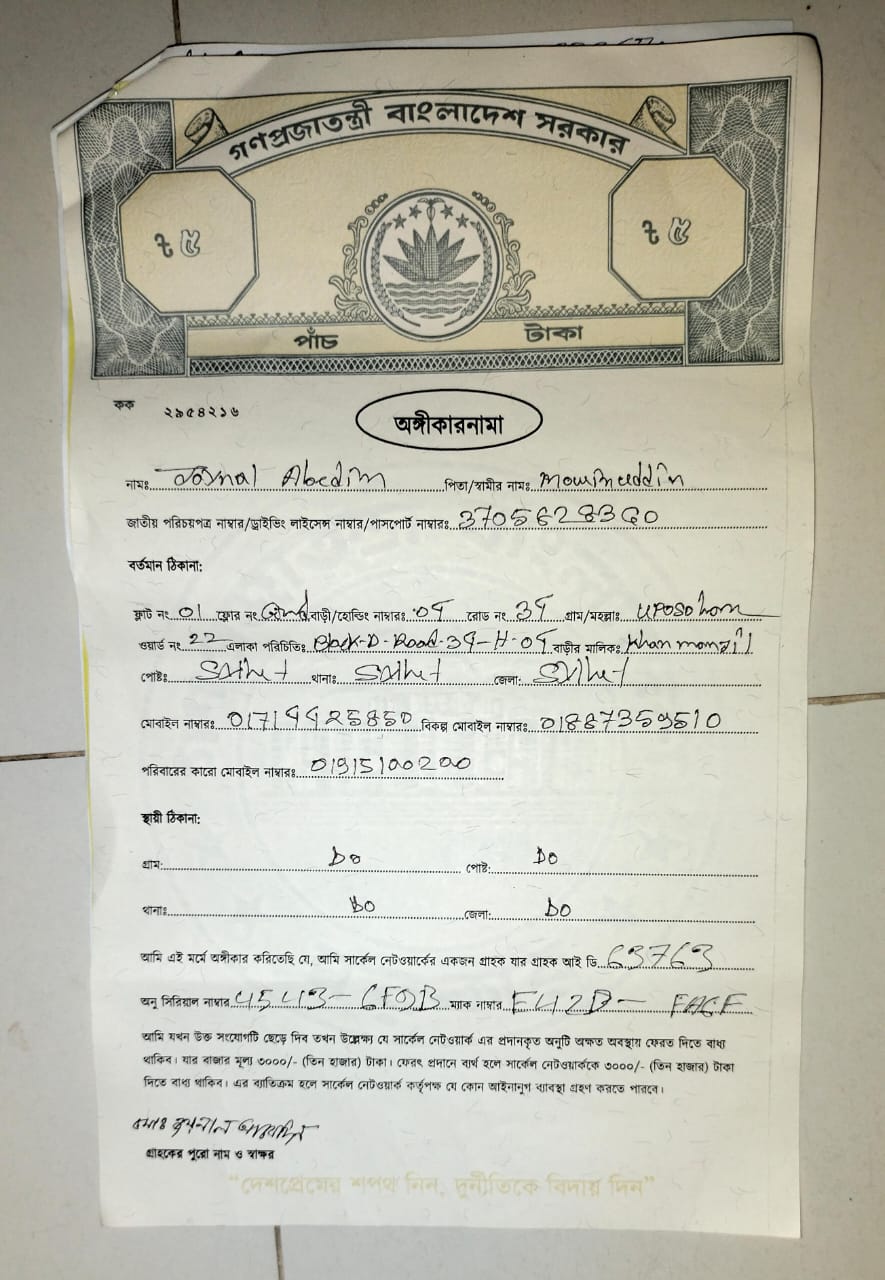 গণপ্রজাতন্ত্রী বাংলাদেশ সরকার
৳ ৫ ৳ ৫
পাঁচ টাকা
কক ২৯৫৪২১৬
অঙ্গীকারনামা
নামঃ Abedin পিতা/স্বামীর নামঃ
জাতীয় পরিচয়পত্র নাম্বার/ড্রাইভিং লাইসেন্স নাম্বার/পাসপোর্ট নাম্বারঃ
বর্তমান ঠিকানা:
ফ্লাট নং 01 ফ্লোর নং বাড়ী/হোল্ডিং নাম্বারঃ রোড নং গ্রাম/মহল্লাঃ
ওয়ার্ড নং 22 এলাকা পরিচিতিঃ Block-D-Road বাড়ীর মালিকঃ Khan manzil
পোষ্টঃ Sylhet থানাঃ Sylhet জেলা: Sylhet
মোবাইল নাম্বারঃ বিকল্প মোবাইল নাম্বারঃ
পরিবারের কারো মোবাইল নাম্বারঃ 01915100200
স্থায়ী ঠিকানা:
গ্রাম: Do পোষ্ট: Do
থানাঃ Do জেলা: Do
আমি এই মর্মে অঙ্গীকার করিতেছি যে, আমি সার্কেল নেটওয়ার্কের একজন গ্রাহক যার গ্রাহক আই ডি 63763
অনু সিরিয়াল নাম্বার ম্যাক নাম্বার
আমি যখন উক্ত সংযোগটি ছেড়ে দিব তখন উল্লেখ্য যে সার্কেল নেটওয়ার্ক এর প্রদানকৃত অনুটি অক্ষত অবস্থায় ফেরত দিতে বাধ্য
থাকিব। যার বাজার মূল্য ৩০০০/- (তিন হাজার) টাকা। ফেরৎ প্রদানে ব্যর্থ হলে সার্কেল নেটওয়ার্ককে ৩০০০/- (তিন হাজার) টাকা
দিতে বাধ্য থাকিব। এর ব্যতিক্রম হলে সার্কেল নেটওয়ার্ক কর্তৃপক্ষ যে কোন আইনানুগ ব্যবস্থা গ্রহণ করতে পারবে।
গ্রাহকের পুরো নাম ও স্বাক্ষর
“দেশপ্রেমের শপথ নিন, দুর্নীতিকে বিদায় দিন”